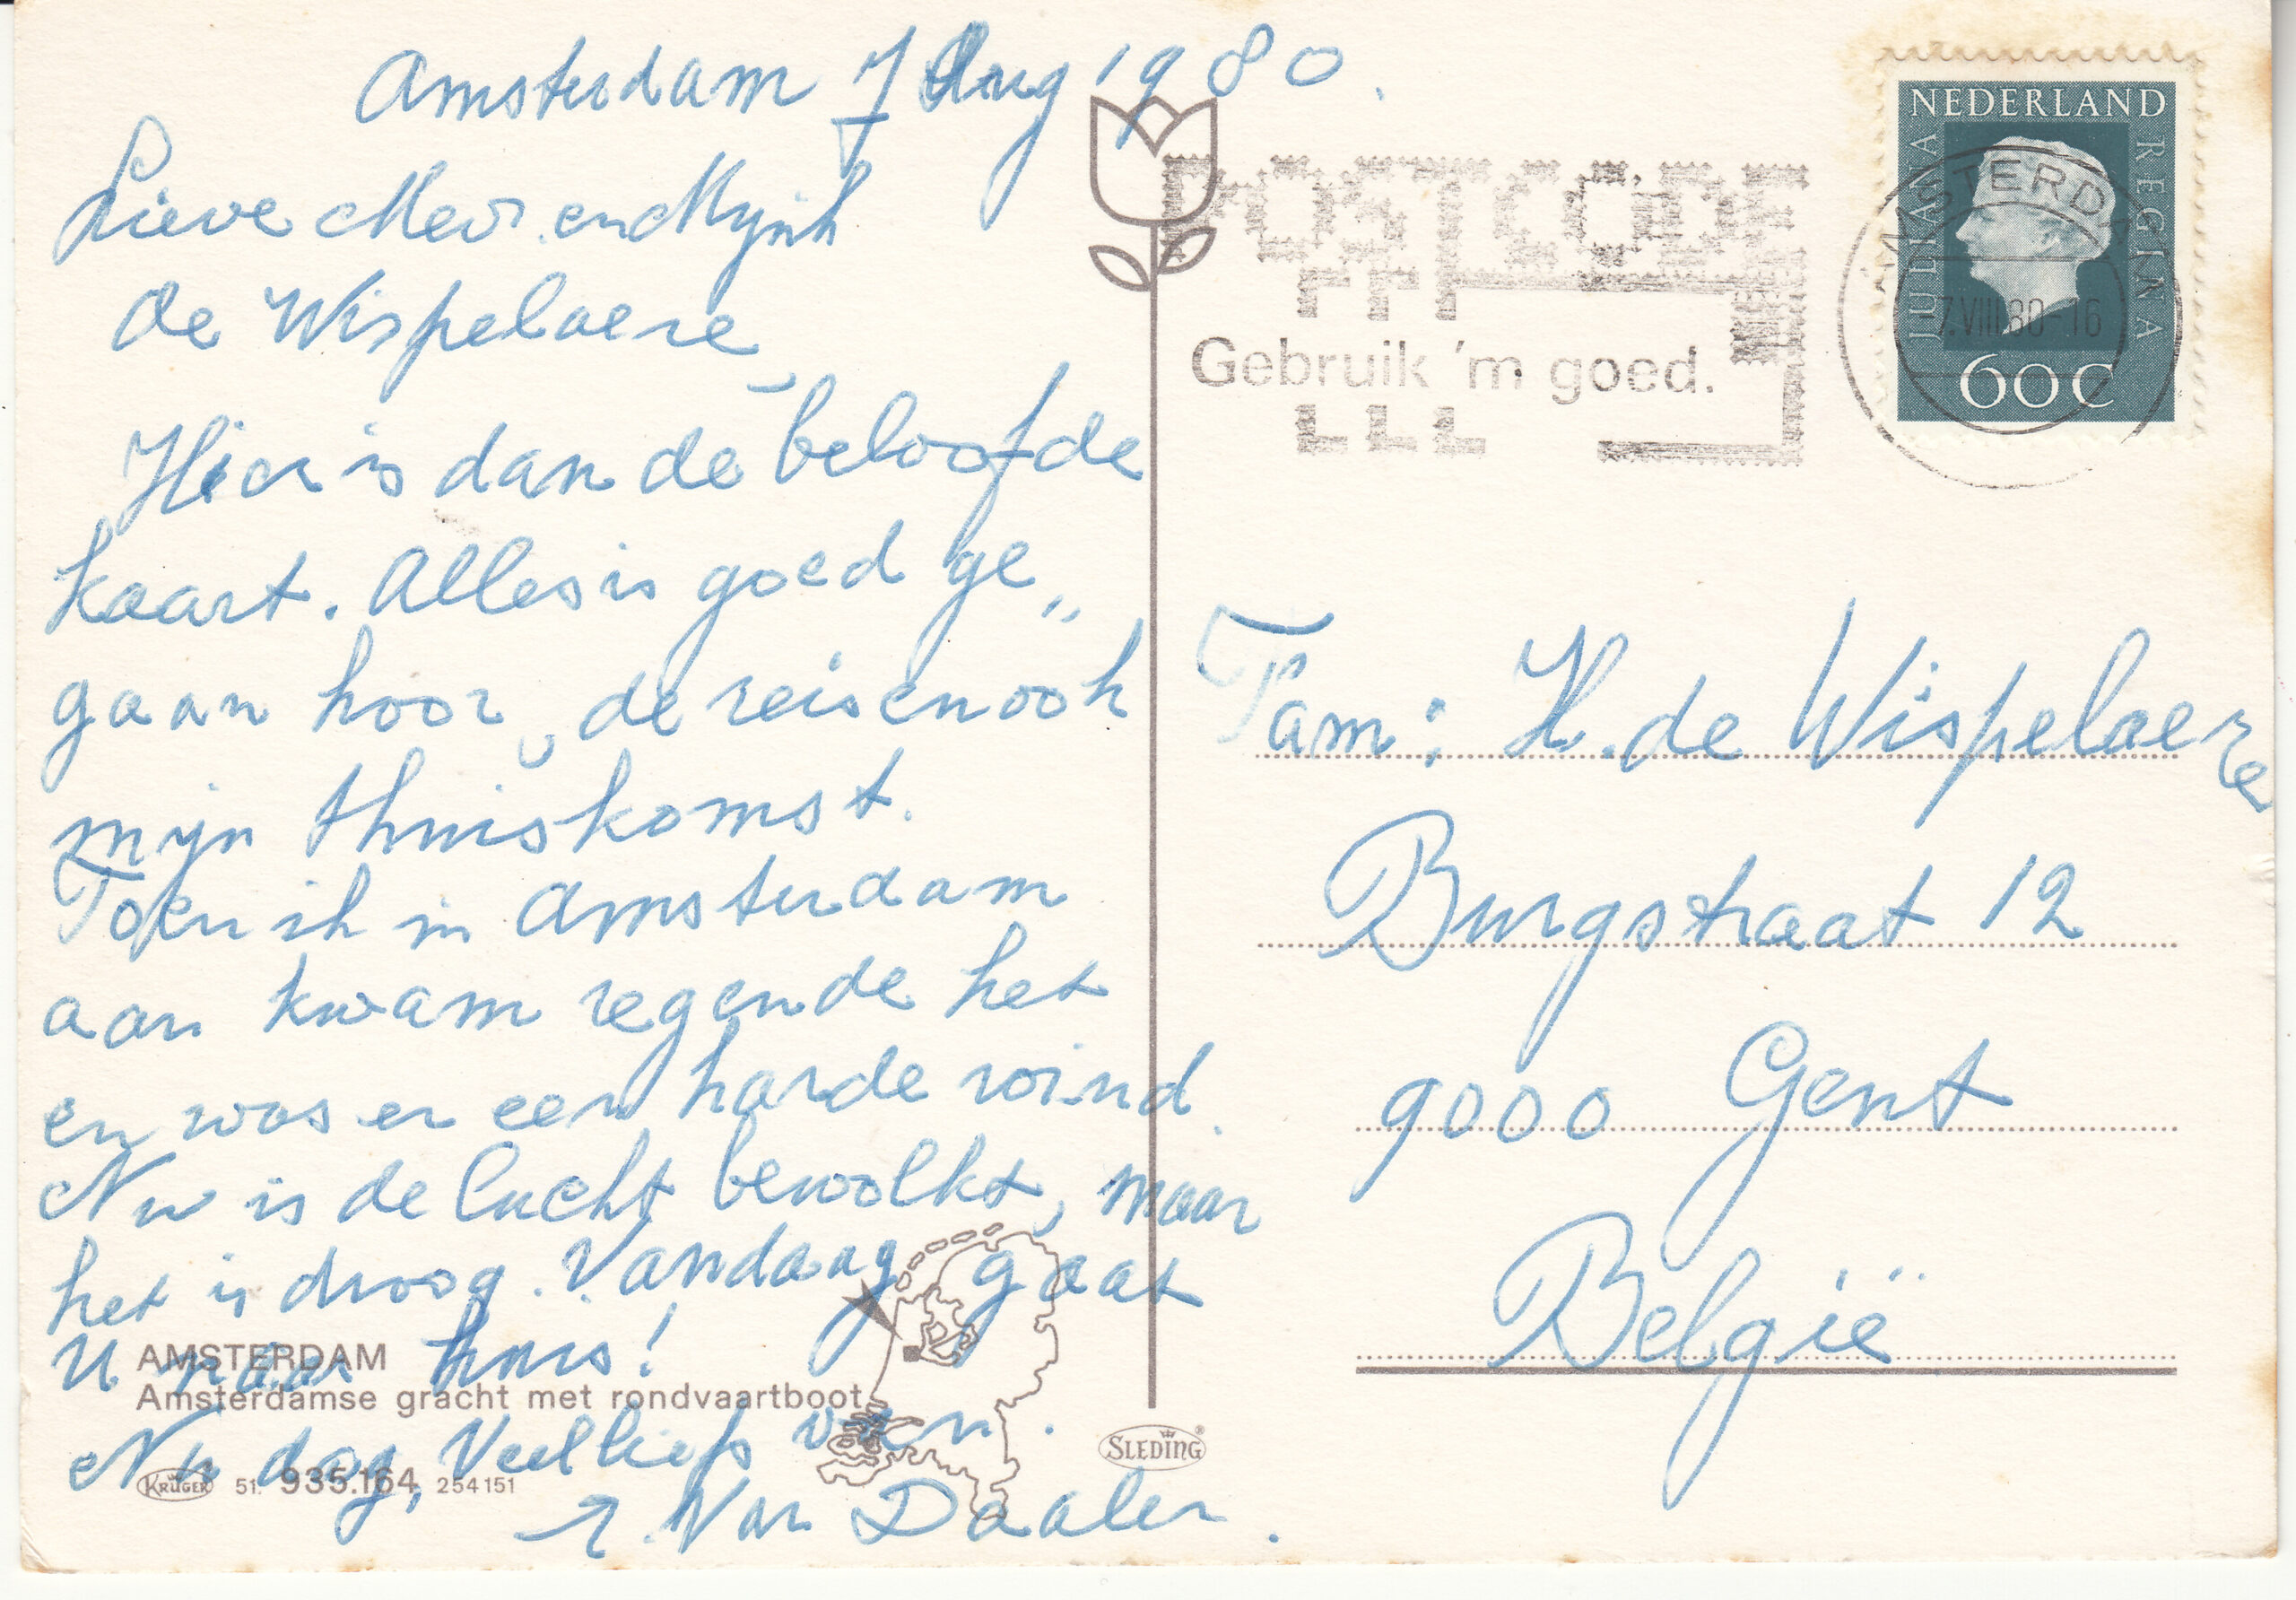 Amsterdam 7 Aug 1980.
Lieve Mevr. en Mynh
de Wispelaere,
Hier is dan de beloofde
kaart. Alles is goed ge„
gaan hoor, de reis en ook
mijn thuiskomst.
Toen ik in Amsterdam
aan kwam regende het
en was er een harde wind.
Nu is de lucht bewolkt, maar
het is droog. Vandaag gaat
U naar huis!
Nu dag, Veel liefs van.
Van Daalen.
AMSTERDAM
Amsterdamse gracht met rondvaartboot
KRÜGER 51. 935.164 254151
SLEDING®
POSTCODE
Gebruik 'm goed.
AMSTERDAM
-7.VIII.80-16
NEDERLAND
JULIANA
REGINA
60C
Fam: H. de Wispelaere
Burgstraat 12
9000 Gent
België